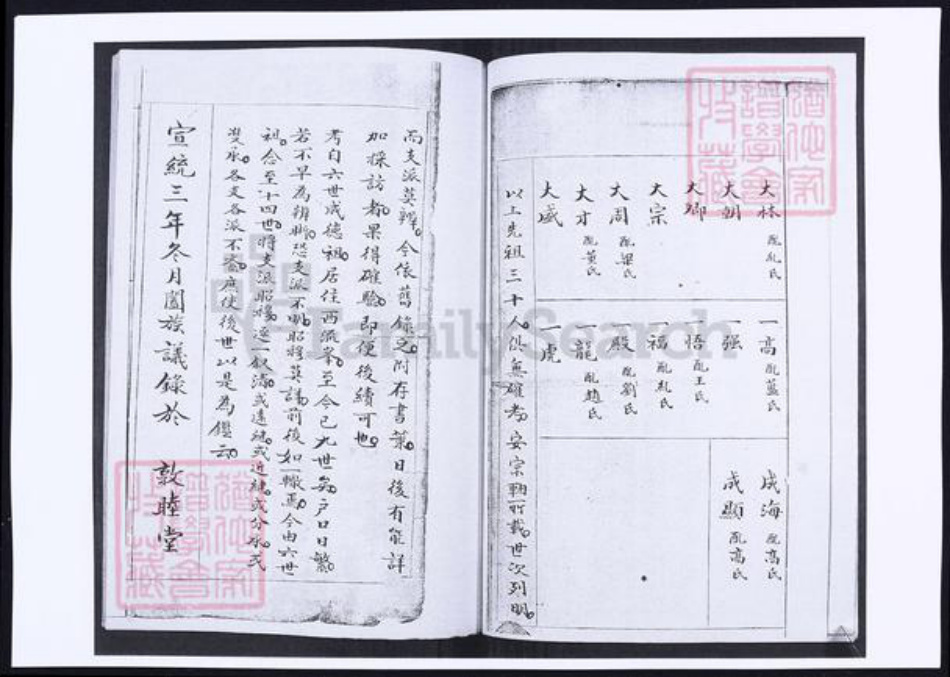 大林 配乱氏
大朝
大卿
大宗
大周 配梁氏
大才 配黄氏
大威
一高 配蓝氏
一强
一悟 配王氏
一福 配乱氏
一殿 配劉氏
一龍 配趙氏
一虎
成海 配高氏
成顯 配高氏
以上先祖三十人俱無確考安宗鞠所載世次列明
而支派莫辨今依舊錄之附存書葉日後有能詳
加採訪者果得確驗即便後續可也
考自六世成德祖居住西流峯至今已九世矣户口日繁
若不早為辨斷恐支派不明昭穆莫議前後如一轍焉今由六世
祖念至十四世將支派昭穆逐一叙清或遠継或近継或分承或
雙承各支各派不紊庶使後世以是為鑑云
宣統三年冬月闔族議錄於 敦睦堂
FamilySearch
猶他家
譜學會
收藏
猶他家
譜學會
收藏